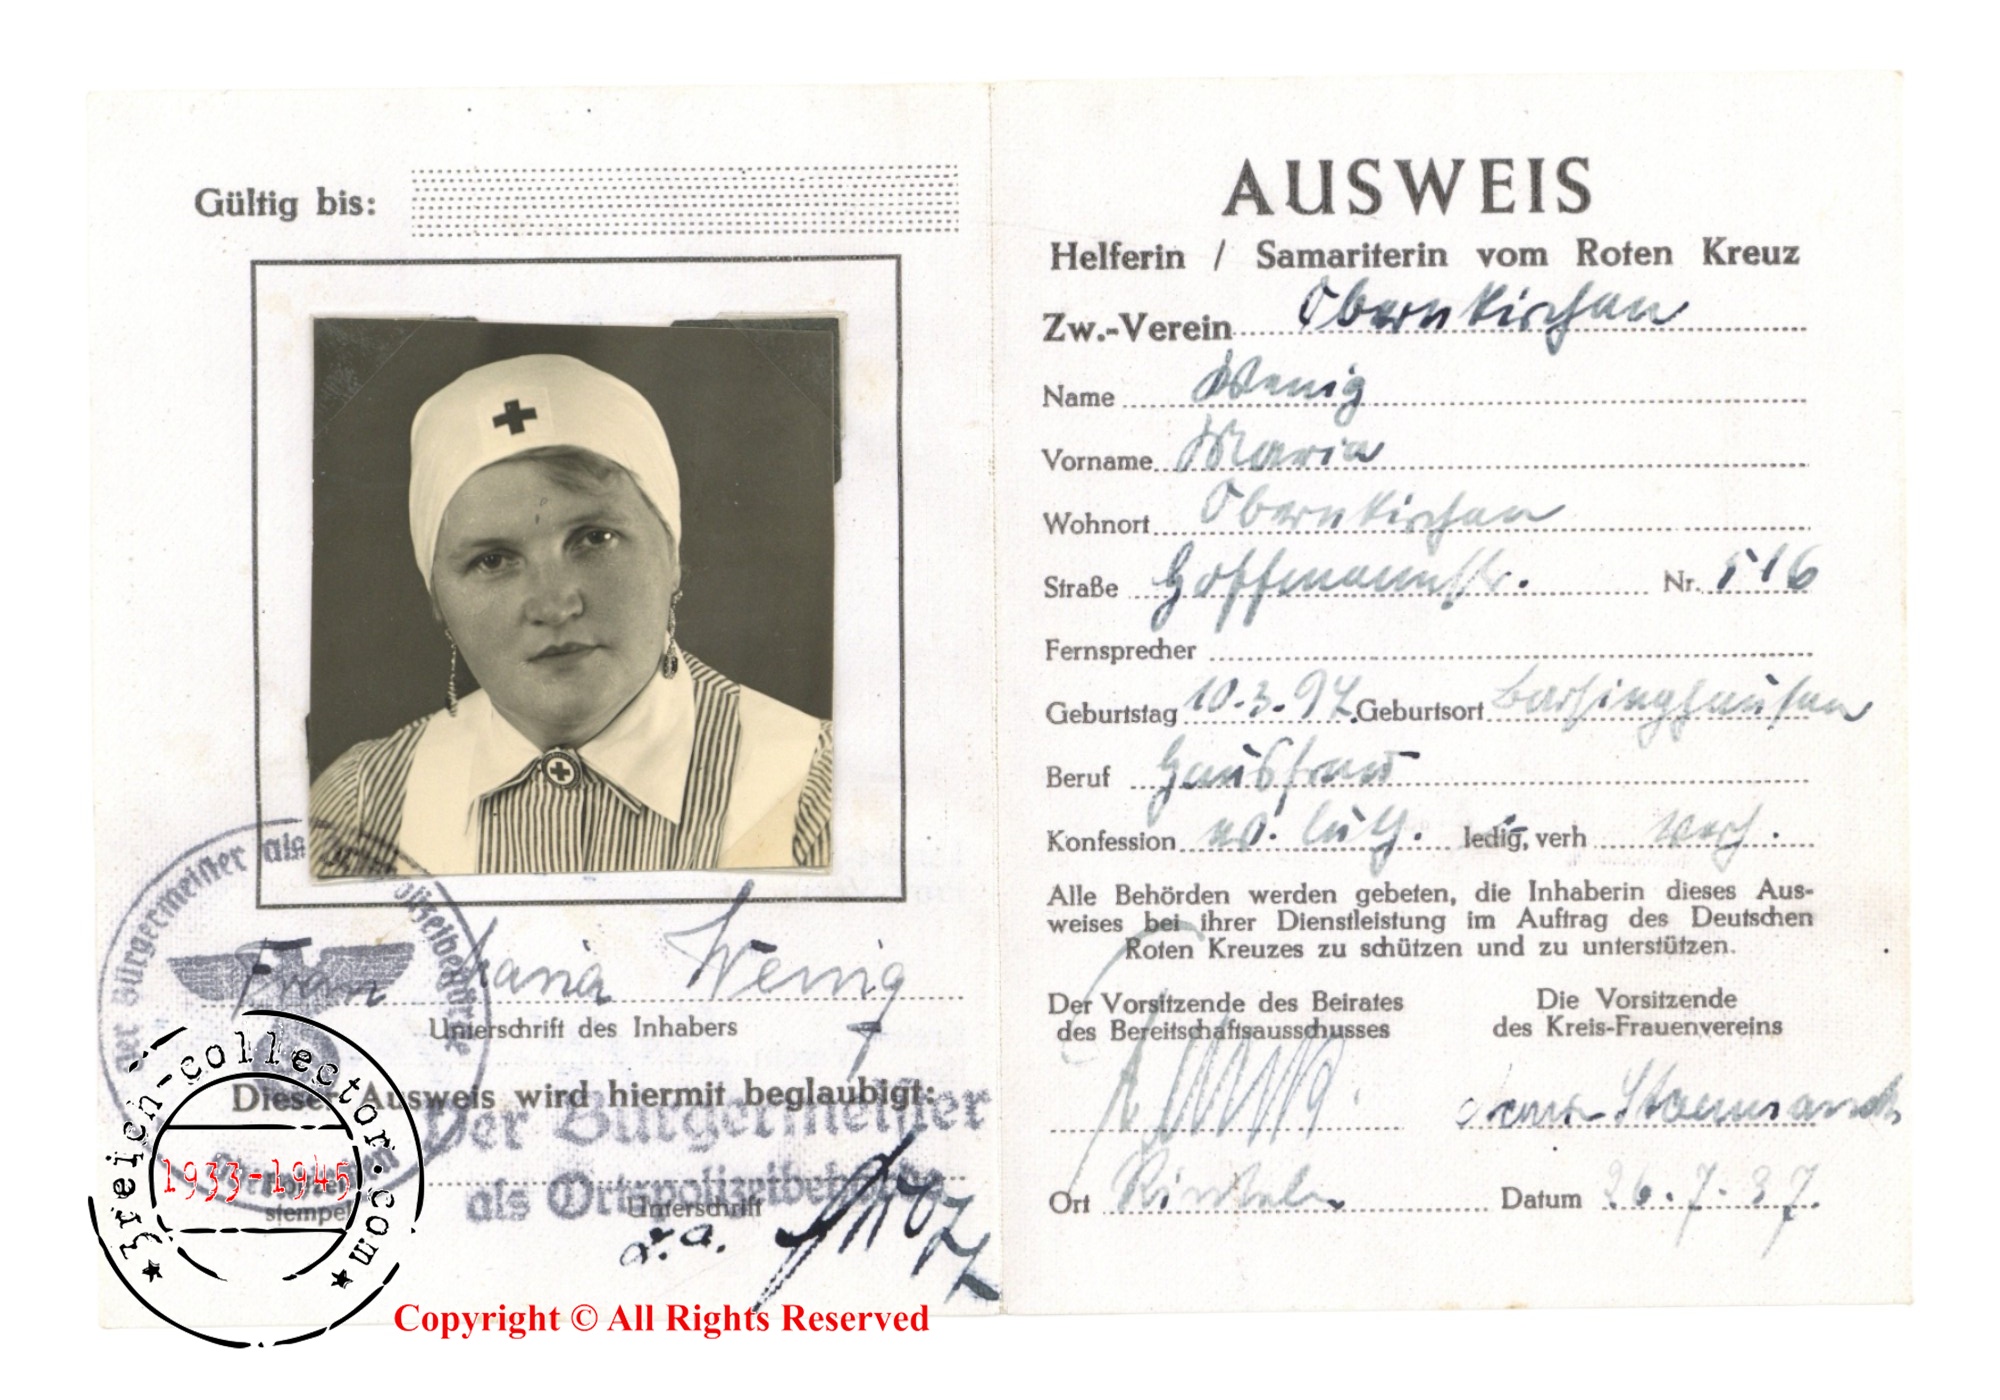 Gültig bis:
der Bürgermeister als Ortspolizeibehörde
Frau Maria Wenig
Unterschrift des Inhabers
Dieser Ausweis wird hiermit beglaubigt:
Der Bürgermeister
als Ortspolizeibehörde
stempel
Unterschrift
3reich-collector.com
1933-1945
Copyright © All Rights Reserved
AUSWEIS
Helferin / Samariterin vom Roten Kreuz
Zw.-Verein Obernkirchen
Name Wenig
Vorname Maria
Wohnort Obernkirchen
Straße Hoffmannstr. Nr. 516
Fernsprecher
Geburtstag 10.3.97. Geburtsort Barsinghausen
Beruf Hausfrau
Konfession ev. luth. ledig, verh verh.
Alle Behörden werden gebeten, die Inhaberin dieses Aus-
weises bei ihrer Dienstleistung im Auftrag des Deutschen
Roten Kreuzes zu schützen und zu unterstützen.
Der Vorsitzende des Beirates
des Bereitschaftsausschusses
Die Vorsitzende
des Kreis-Frauenvereins
Ort Rinteln Datum 26.7.37.